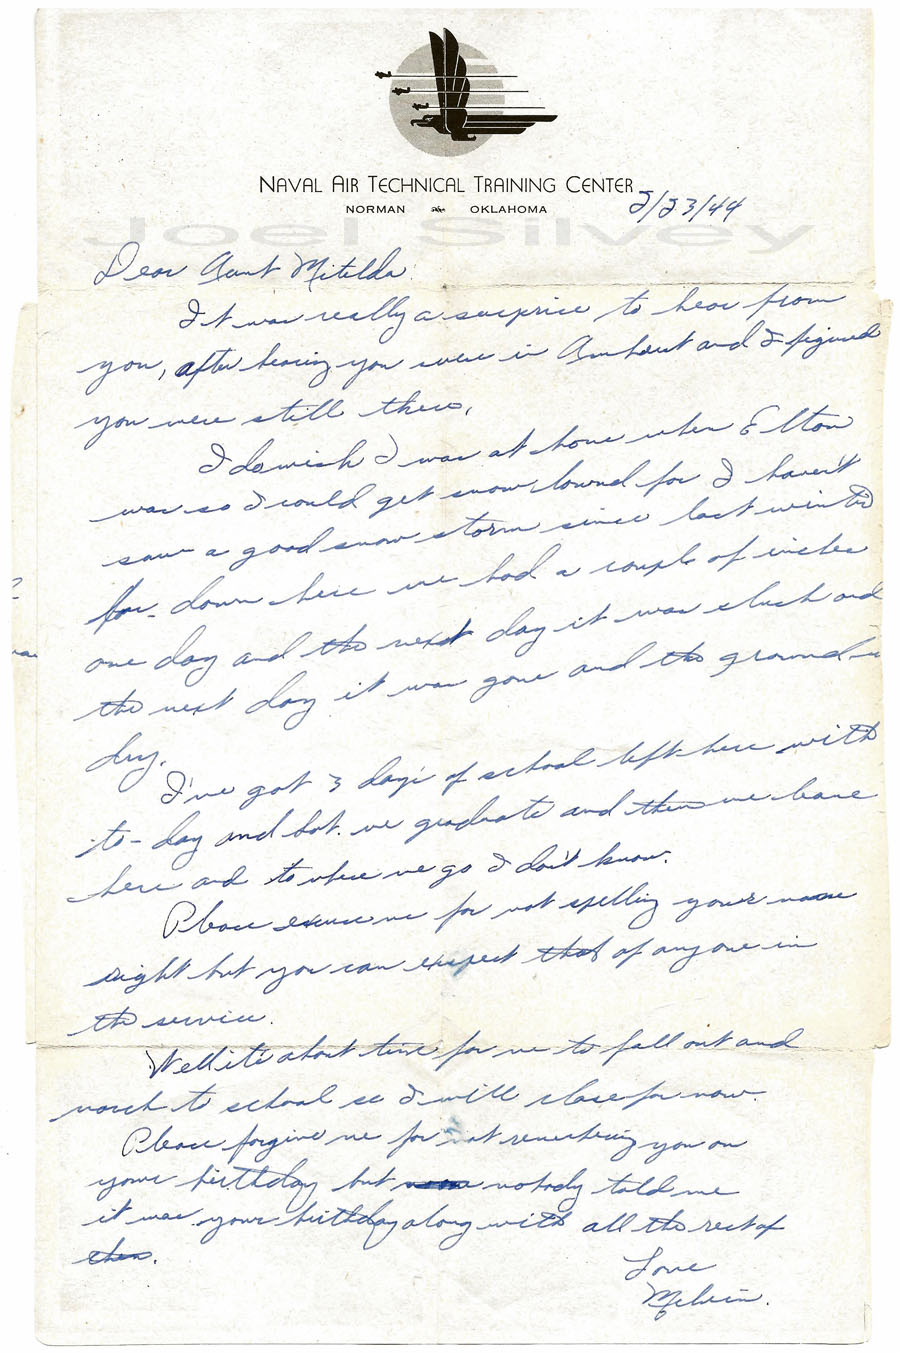 NAVAL AIR TECHNICAL TRAINING CENTER
NORMAN OKLAHOMA 2/23/44
Joel Silvey
Dear Aunt Mitilda
It was really a surprise to hear from
you, after hearing you were in Amhurst and I figured
you were still there,
I do wish I was at home when Elton
was so I could get snow bound for I haven't
saw a good snow storm since last winter
for down here we had a couple of inches
one day and the next day it was slush and
the next day it was gone and the ground
dry.
I've got 3 day's of school left here with
to-day and Sat. we graduate and then we leave
here and to where we go I don't know.
Please excuse me for not spelling your name
right but you can expect that of anyone in
the service.
Well its about time for me to fall out and
march to school so I will close for now.
Please forgive me for not remembering you on
your birthday but nobody told me
it was your birthday along with all the rest of
them.
Love
Melvin.